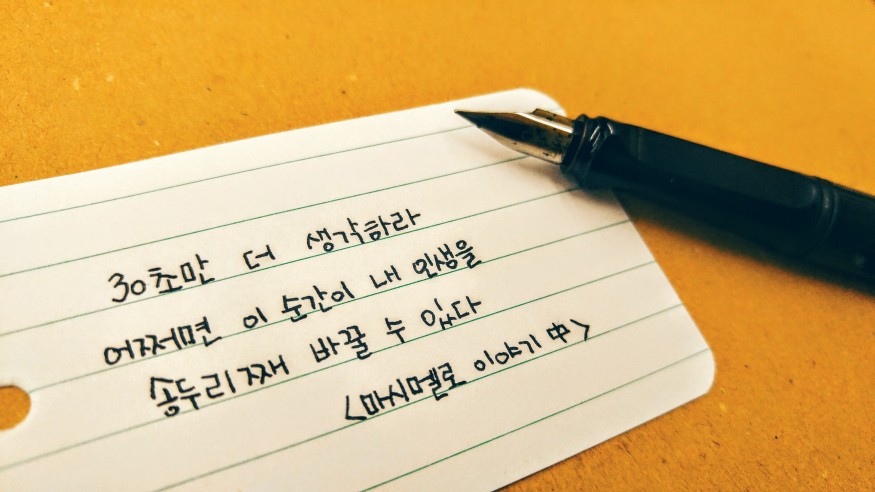 30초만 더 생각하라
어쩌면 이 순간이 내 인생을
송두리째 바꿀 수 있다
<마시멜로 이야기 中>